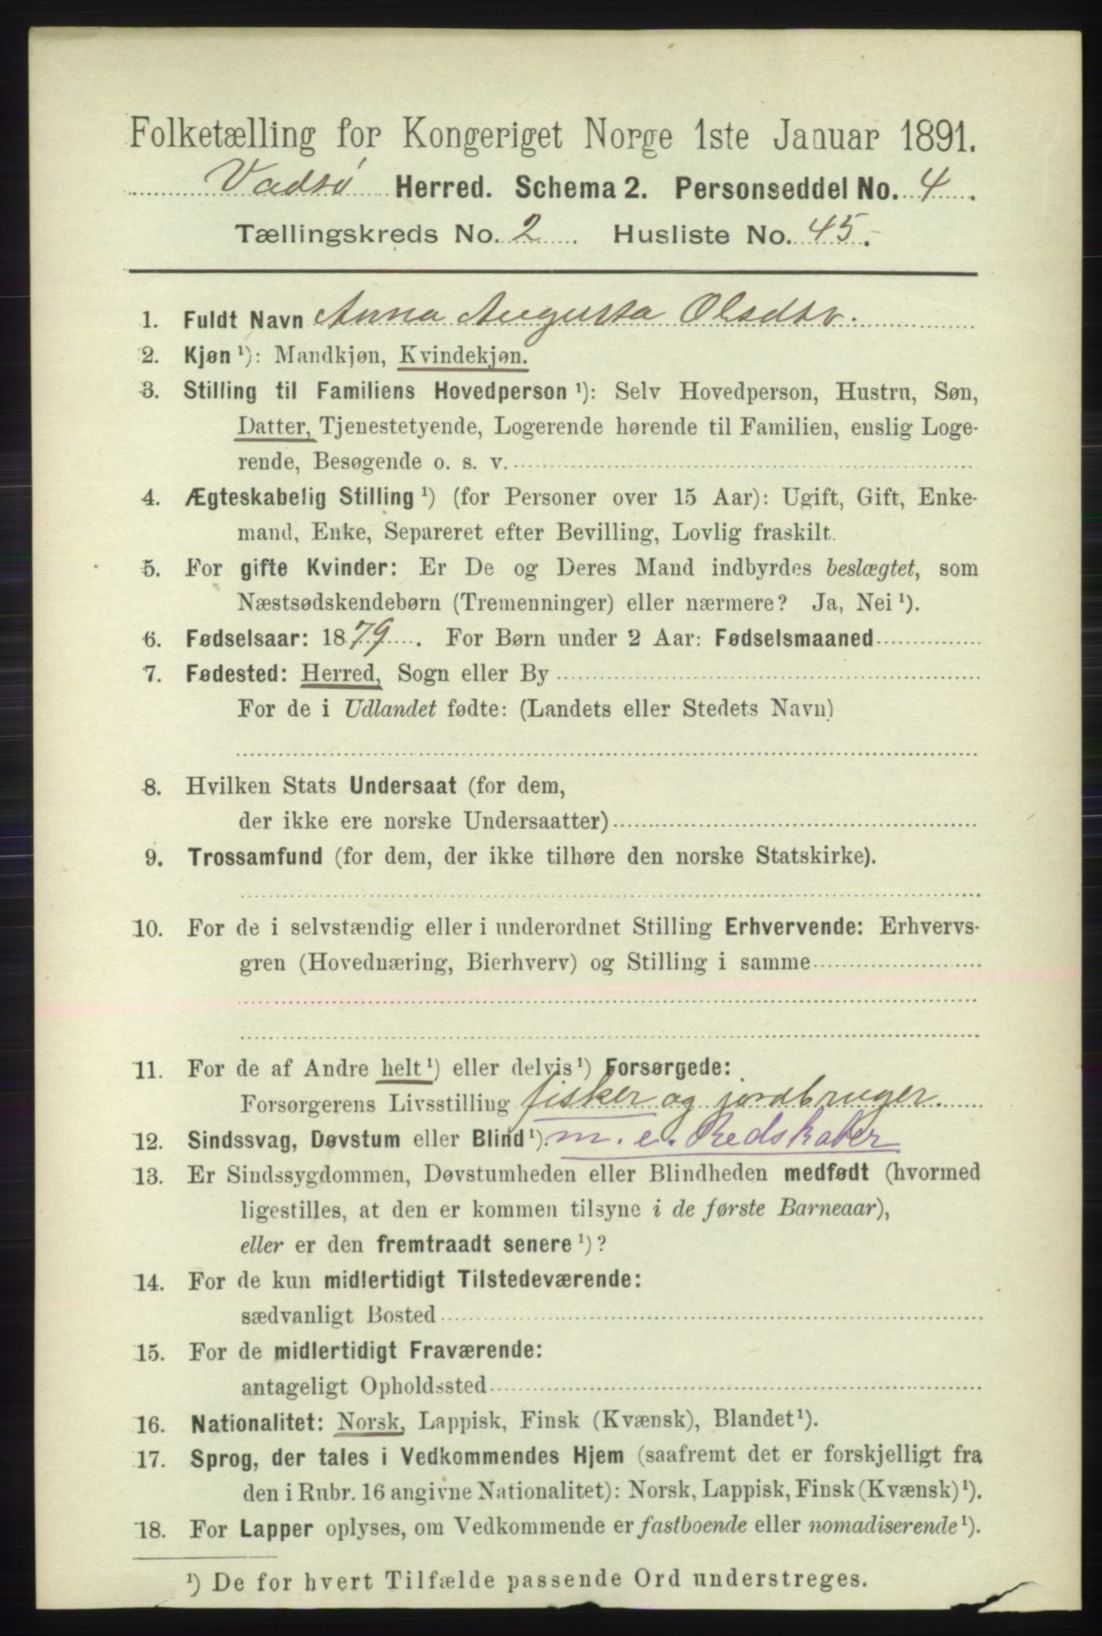 Folketælling for Kongeriget Norge 1ste Januar 1891.
Vadsø Herred. Schema 2. Personseddel No. 4.
Tællingskreds No. 2. Husliste No. 45.
1. Fuldt Navn Anna Augusta Olsdtr.
2. Kjøn ¹): Mandkjøn, Kvindekjøn.
3. Stilling til Familiens Hovedperson ¹): Selv Hovedperson, Hustru, Søn,
Datter, Tjenestetyende, Logerende hørende til Familien, enslig Loge-
rende, Besøgende o. s. v.
4. Ægteskabelig Stilling ¹) (for Personer over 15 Aar): Ugift, Gift, Enke-
mand, Enke, Separeret efter Bevilling, Lovlig fraskilt.
5. For gifte Kvinder: Er De og Deres Mand indbyrdes beslægtet, som
Næstsødskendebørn (Tremenninger) eller nærmere? Ja, Nei ¹).
6. Fødselsaar: 1879. For Børn under 2 Aar: Fødselsmaaned
7. Fødested: Herred, Sogn eller By
For de i Udlandet fødte: (Landets eller Stedets Navn)
8. Hvilken Stats Undersaat (for dem,
der ikke ere norske Undersaatter)
9. Trossamfund (for dem, der ikke tilhøre den norske Statskirke).
10. For de i selvstændig eller i underordnet Stilling Erhvervende: Erhvervs-
gren (Hovednæring, Bierhverv) og Stilling i samme
11. For de af Andre helt ¹) eller delvis ¹) Forsørgede:
Forsørgerens Livsstilling fisker og jordbruger.
12. Sindssvag, Døvstum eller Blind ¹). m. e. Redskaber
13. Er Sindssygdommen, Døvstumheden eller Blindheden medfødt (hvormed
ligestilles, at den er kommen tilsyne i de første Barneaar),
eller er den fremtraadt senere ¹)?
14. For de kun midlertidigt Tilstedeværende:
sædvanligt Bosted
15. For de midlertidigt Fraværende:
antageligt Opholdssted
16. Nationalitet: Norsk, Lappisk, Finsk (Kvænsk), Blandet ¹).
17. Sprog, der tales i Vedkommendes Hjem (saafremt det er forskjelligt fra
den i Rubr. 16 angivne Nationalitet): Norsk, Lappisk, Finsk (Kvænsk) ¹).
18. For Lapper oplyses, om Vedkommende er fastboende eller nomadiserende ¹).
¹) De for hvert Tilfælde passende Ord understreges.